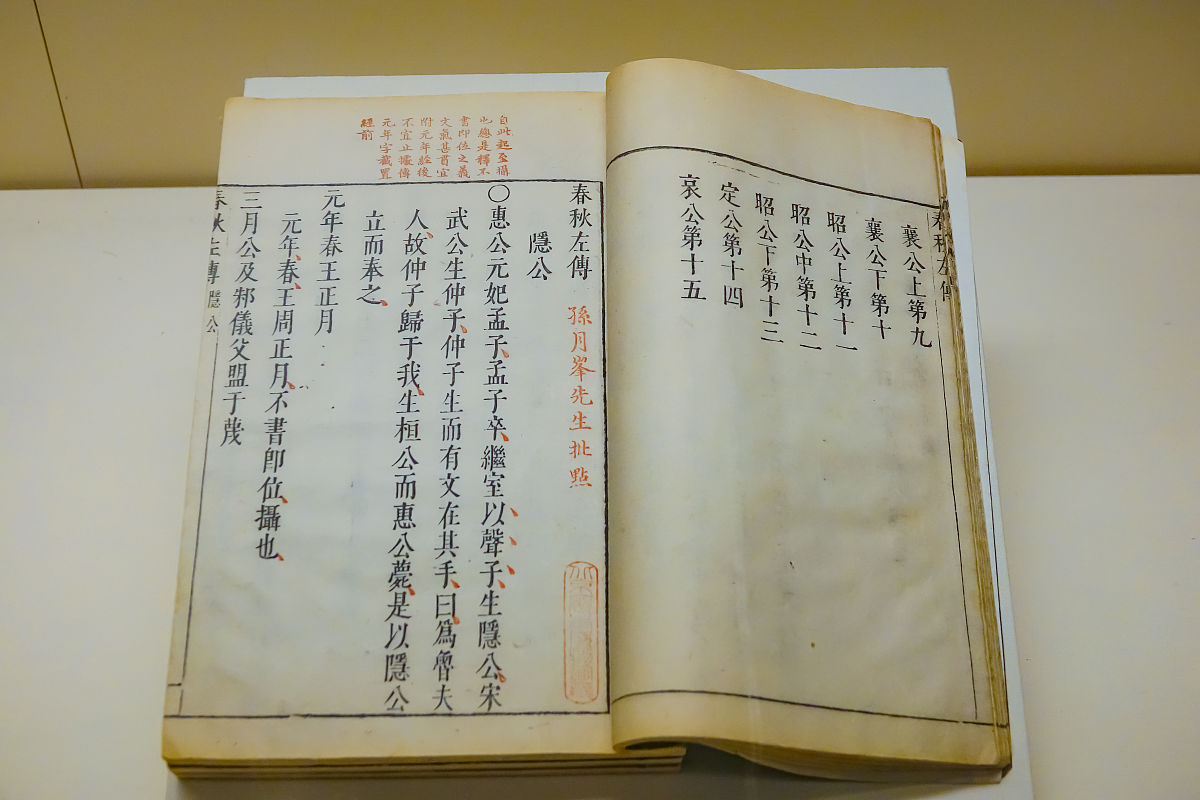 襄公上第九
襄公下第十
昭公上第十一
昭公中第十二
昭公下第十三
定公第十四
哀公第十五
春秋左傳
孫月峯先生批點
隱公
自此起至攝
也總是釋不
書即位之義
文氣甚貫宜
附元年經後
不宜止據傳
元年字截置
經前
〇惠公元妃孟子、孟子卒、繼室以聲子、生隱公、宋
武公生仲子、仲子生而有文在其手、曰、爲魯夫
人、故仲子歸于我、生桓公而惠公薨、是以隱公
立而奉之、
元年春王正月
元年、春、王周正月、不書卽位、攝也、
三月公及邾儀父盟于蔑
春秋左傳 隱公 一